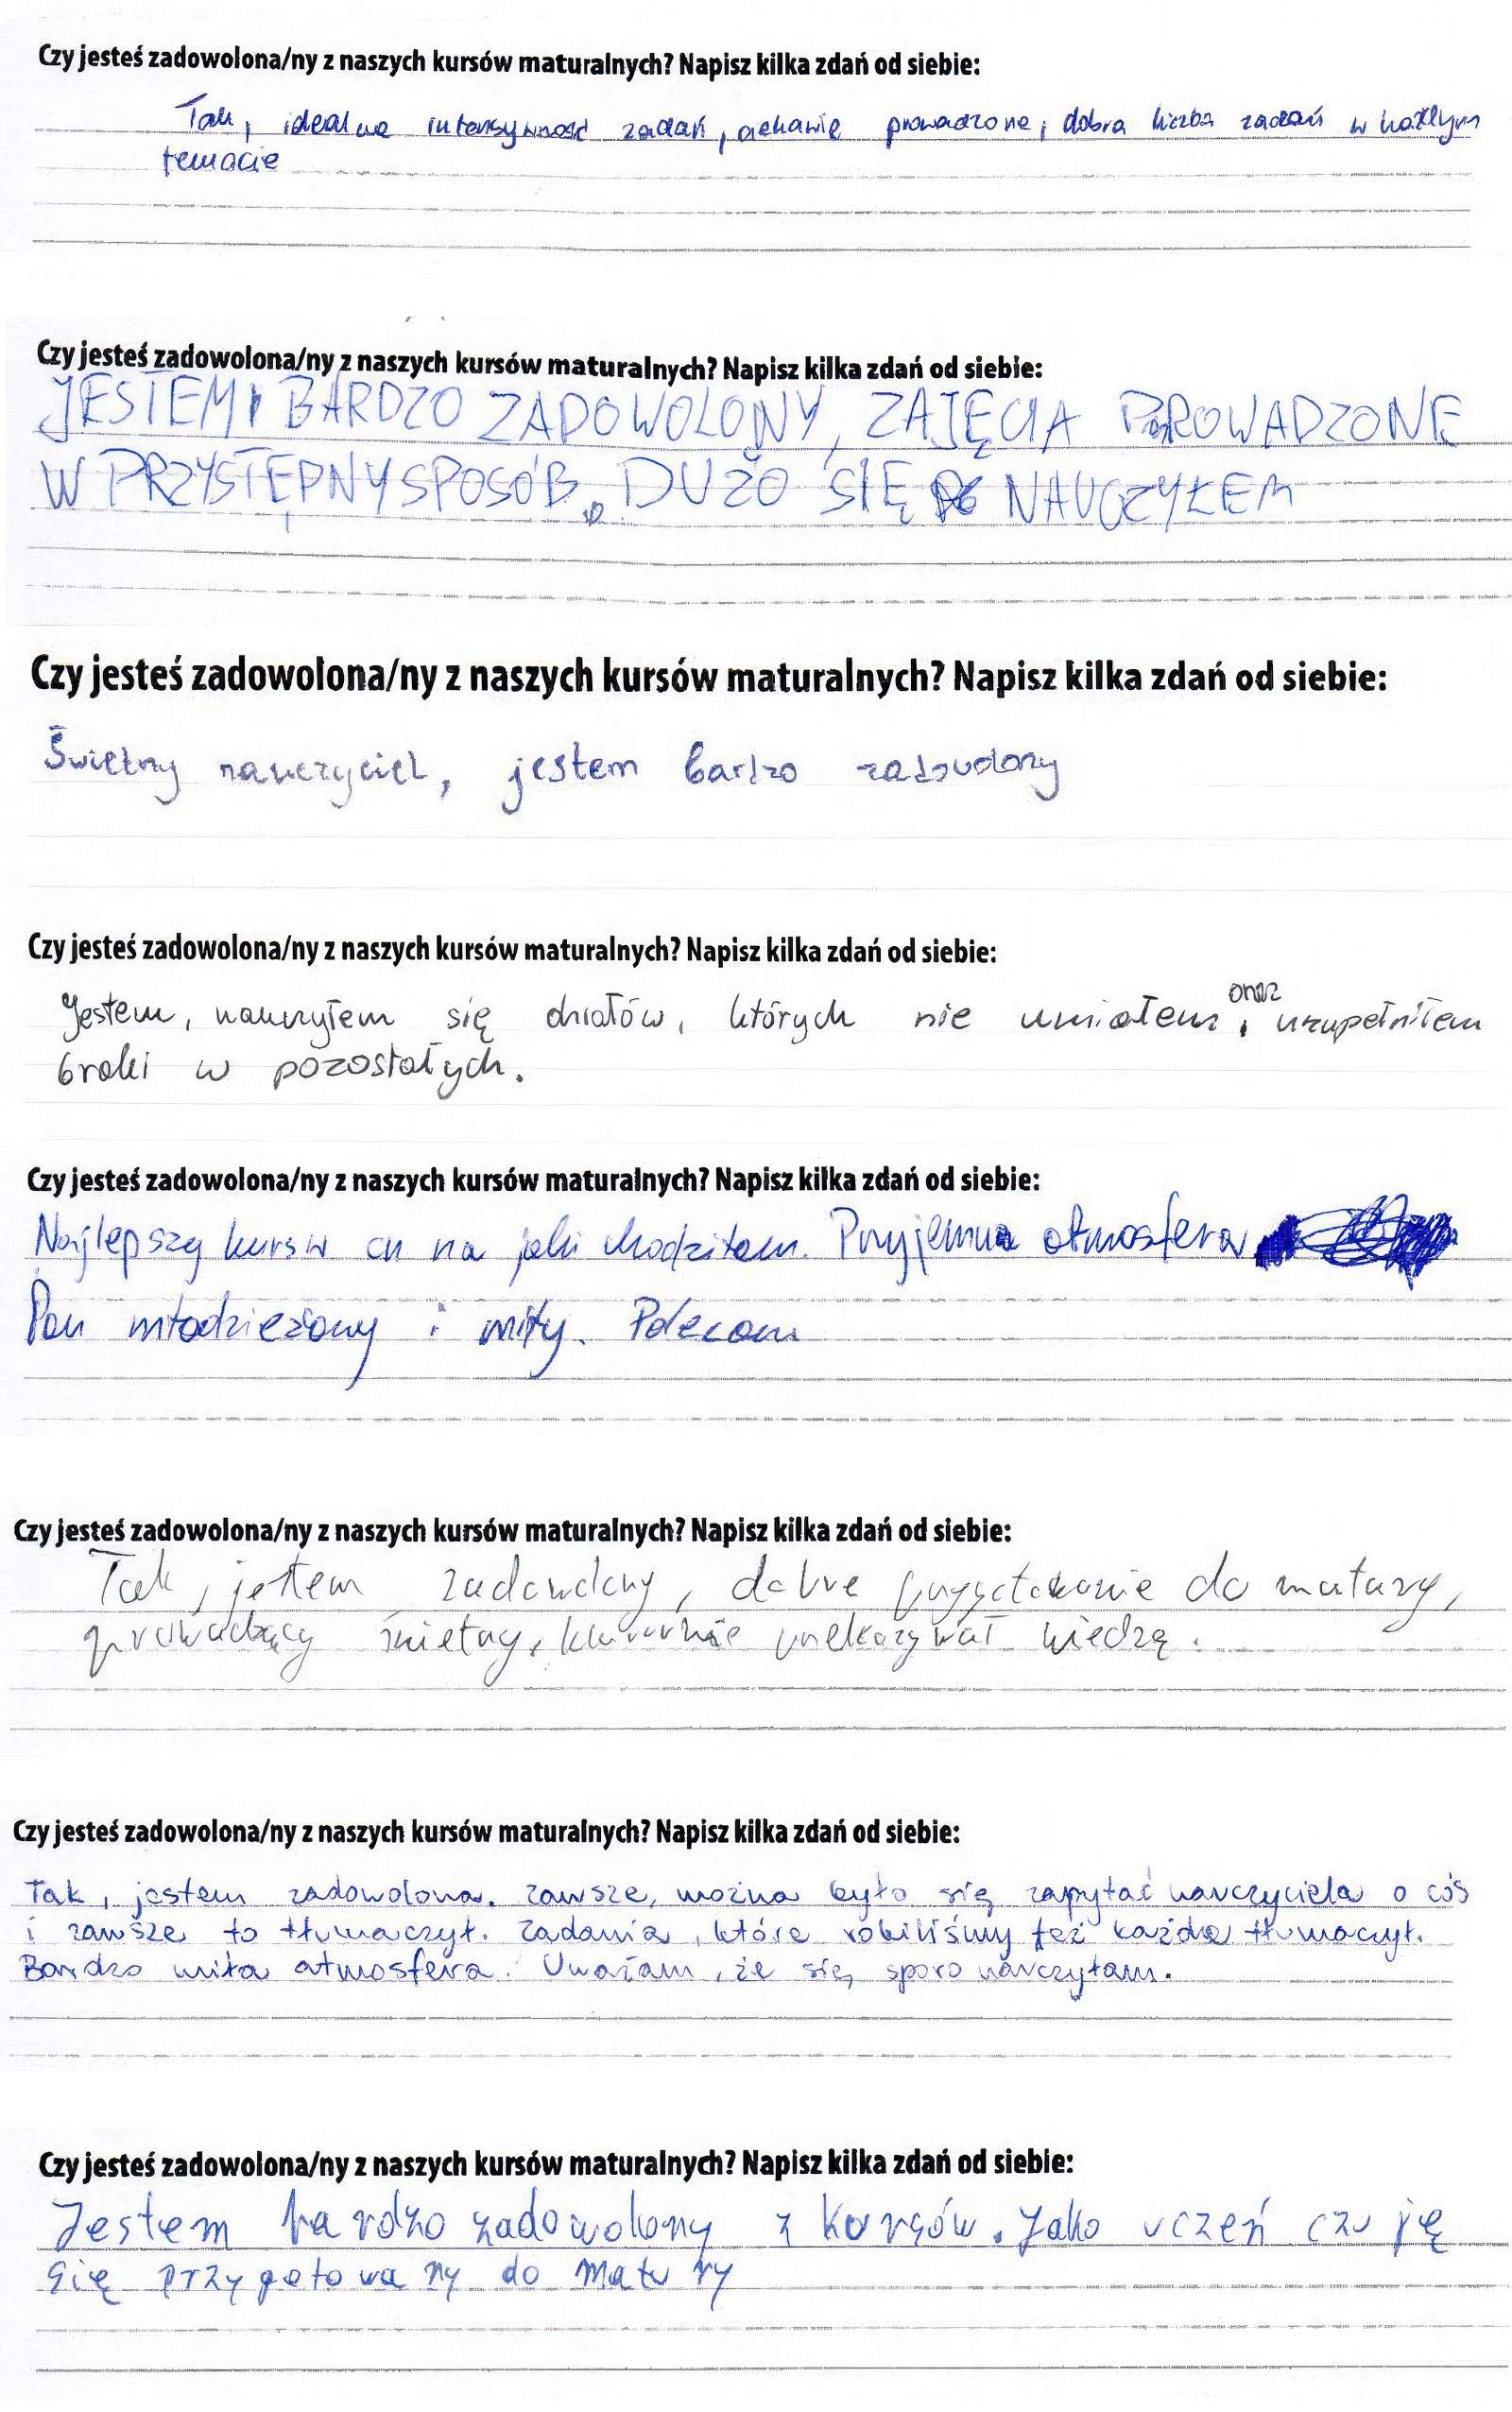 Czy jesteś zadowolona/ny z naszych kursów maturalnych? Napisz kilka zdań od siebie:
Tak, idealna intensywność zadań, ciekawie prowadzone, dobra liczba zadań w każdym
temacie
Czy jesteś zadowolona/ny z naszych kursów maturalnych? Napisz kilka zdań od siebie:
JESTEM BARDZO ZADOWOLONY, ZAJĘCIA PROWADZONE
W PRZYSTĘPNY SPOSÓB. DUŻO SIĘ NAUCZYŁEM
Czy jesteś zadowolona/ny z naszych kursów maturalnych? Napisz kilka zdań od siebie:
Świetny nauczyciel, jestem bardzo zadowolony
Czy jesteś zadowolona/ny z naszych kursów maturalnych? Napisz kilka zdań od siebie:
Jestem, nauczyłem się działów, których nie umiałem oraz uzupełniłem
braki w pozostałych.
Czy jesteś zadowolona/ny z naszych kursów maturalnych? Napisz kilka zdań od siebie:
Najlepszy kurs na jaki chodziłam. Przyjemna atmosfera
Pan młodzieżowy i miły. Polecam
Czy jesteś zadowolona/ny z naszych kursów maturalnych? Napisz kilka zdań od siebie:
Tak, jestem zadowolony, dobre przygotowanie do matury,
prowadzący świetny, klarownie przekazywał wiedzę.
Czy jesteś zadowolona/ny z naszych kursów maturalnych? Napisz kilka zdań od siebie:
Tak, jestem zadowolona. Zawsze, można było się zapytać nauczyciela o coś
i zawsze to tłumaczył. Zadania, które robiliśmy też każde tłumaczył.
Bardzo miła atmosfera. Uważam, że się sporo nauczyłam.
Czy jesteś zadowolona/ny z naszych kursów maturalnych? Napisz kilka zdań od siebie:
Jestem bardzo zadowolony z kursów. Jako uczeń czuję
się przygotowany do matury